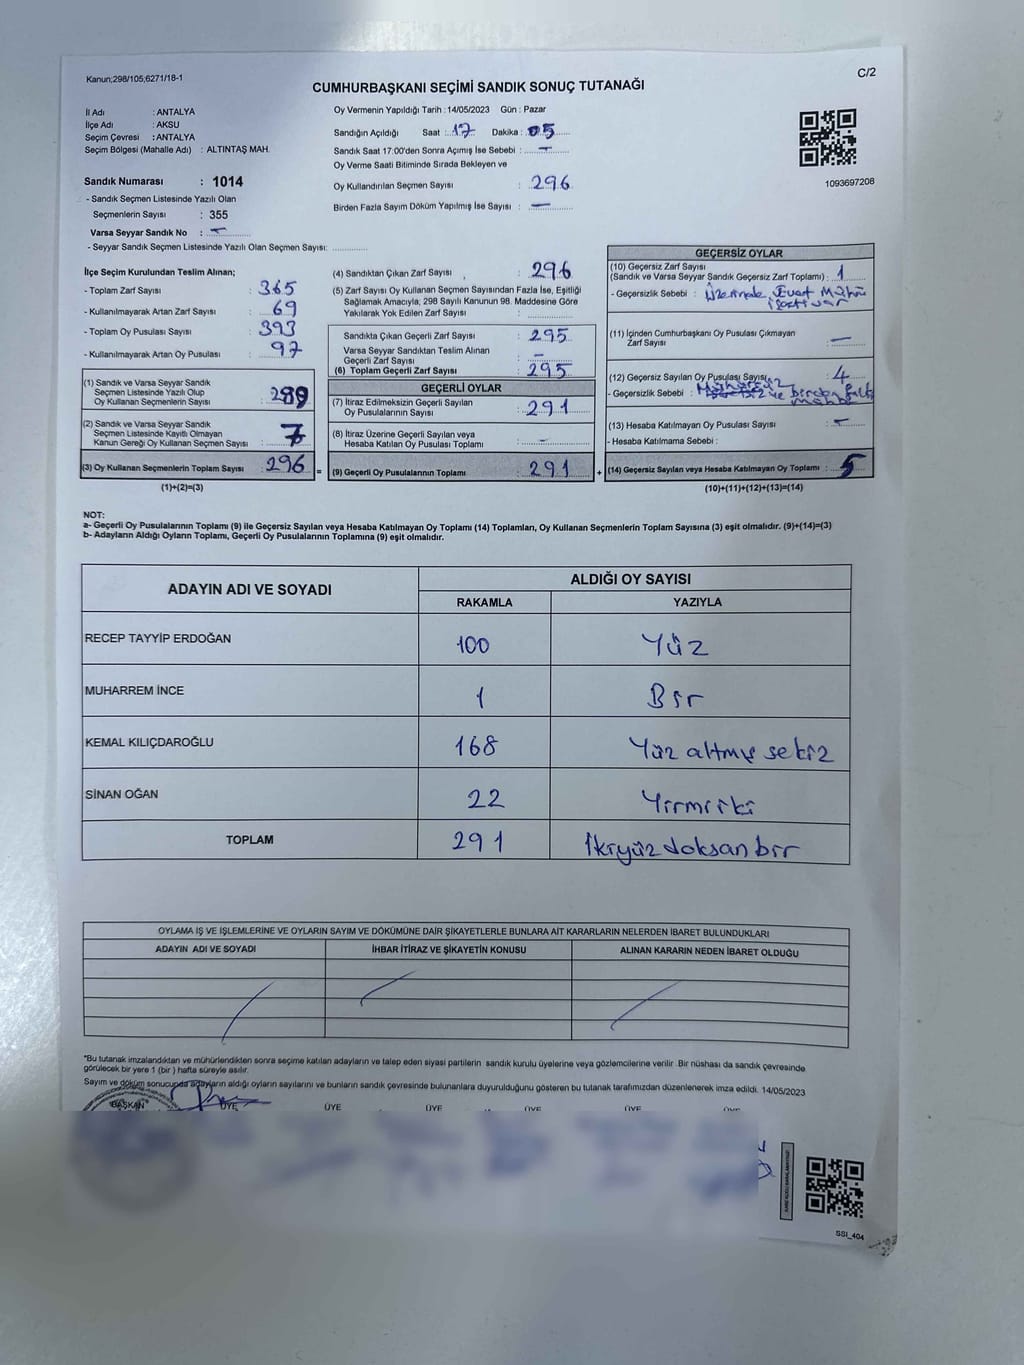 Kanun;298/105;6271/18-1
C/2
CUMHURBAŞKANI SEÇİMİ SANDIK SONUÇ TUTANAĞI
İl Adı : ANTALYA
İlçe Adı : AKSU
Seçim Çevresi : ANTALYA
Seçim Bölgesi (Mahalle Adı) : ALTINTAŞ MAH.
Sandık Numarası : 1014
- Sandık Seçmen Listesinde Yazılı Olan
Seçmenlerin Sayısı : 355
Varsa Seyyar Sandık No : –
- Seyyar Sandık Seçmen Listesinde Yazılı Olan Seçmen Sayısı: ..............
Oy Vermenin Yapıldığı Tarih : 14/05/2023 Gün : Pazar
Sandığın Açıldığı Saat : 17 Dakika : 05
Sandık Saat 17:00'den Sonra Açımış İse Sebebi : –
Oy Verme Saati Bitiminde Sırada Bekleyen ve
Oy Kullandırılan Seçmen Sayısı : 296
Birden Fazla Sayım Döküm Yapılmış İse Sayısı : –
1093697208
İlçe Seçim Kurulundan Teslim Alınan;
- Toplam Zarf Sayısı : 365
- Kullanılmayarak Artan Zarf Sayısı : 69
- Toplam Oy Pusulası Sayısı : 393
- Kullanılmayarak Artan Oy Pusulası : 97
(1) Sandık ve Varsa Seyyar Sandık
Seçmen Listesinde Yazılı Olup
Oy Kullanan Seçmenlerin Sayısı : 289
(2) Sandık ve Varsa Seyyar Sandık
Seçmen Listesinde Kayıtlı Olmayan
Kanun Gereği Oy Kullanan Seçmen Sayısı : 7
(3) Oy Kullanan Seçmenlerin Toplam Sayısı : 296 =
(1)+(2)=(3)
(4) Sandıktan Çıkan Zarf Sayısı : 296
(5) Zarf Sayısı Oy Kullanan Seçmen Sayısından Fazla İse, Eşitliği
Sağlamak Amacıyla, 298 Sayılı Kanunun 98. Maddesine Göre
Yakılarak Yok Edilen Zarf Sayısı :
Sandıkta Çıkan Geçerli Zarf Sayısı : 295
Varsa Seyyar Sandıktan Teslim Alınan
Geçerli Zarf Sayısı : –
(6) Toplam Geçerli Zarf Sayısı : 295
GEÇERLİ OYLAR
(7) İtiraz Edilmeksizin Geçerli Sayılan
Oy Pusulalarının Sayısı : 291
(8) İtiraz Üzerine Geçerli Sayılan veya
Hesaba Katılan Oy Pusulası Toplamı : –
(9) Geçerli Oy Pusulalarının Toplamı : 291 +
GEÇERSİZ OYLAR
(10) Geçersiz Zarf Sayısı
(Sandık ve Varsa Seyyar Sandık Geçersiz Zarf Toplamı) : 1
- Geçersizlik Sebebi : Üzerinde Evet Mührü
var
(11) İçinden Cumhurbaşkanı Oy Pusulası Çıkmayan
Zarf Sayısı : –
(12) Geçersiz Sayılan Oy Pusulası Sayısı : 4
- Geçersizlik Sebebi : Mühürsüz
ve birden fazla
(13) Hesaba Katılmayan Oy Pusulası Sayısı : –
- Hesaba Katılmama Sebebi :
(14) Geçersiz Sayılan veya Hesaba Katılmayan Oy Toplamı : 5
(10)+(11)+(12)+(13)=(14)
NOT:
a- Geçerli Oy Pusulalarının Toplamı (9) ile Geçersiz Sayılan veya Hesaba Katılmayan Oy Toplamı (14) Toplamları, Oy Kullanan Seçmenlerin Toplam Sayısına (3) eşit olmalıdır. (9)+(14)=(3)
b- Adayların Aldığı Oyların Toplamı, Geçerli Oy Pusulalarının Toplamına (9) eşit olmalıdır.
ADAYIN ADI VE SOYADI ALDIĞI OY SAYISI
RAKAMLA YAZIYLA
RECEP TAYYİP ERDOĞAN 100 Yüz
MUHARREM İNCE 1 Bir
KEMAL KILIÇDAROĞLU 168 Yüz altmış sekiz
SİNAN OĞAN 22 Yirmi iki
TOPLAM 291 İkiyüz doksan bir
OYLAMA İŞ VE İŞLEMLERİNE VE OYLARIN SAYIM VE DÖKÜMÜNE DAİR ŞİKAYETLERLE BUNLARA AİT KARARLARIN NELERDEN İBARET BULUNDUKLARI
ADAYIN ADI VE SOYADI İHBAR İTİRAZ VE ŞİKAYETİN KONUSU ALINAN KARARIN NEDEN İBARET OLDUĞU
*Bu tutanak imzalandıktan ve mühürlendikten sonra seçime katılan adayların ve talep eden siyasi partilerin sandık kurulu üyelerine veya gözlemcilerine verilir. Bir nüshası da sandık çevresinde
görülecek bir yere 1 (bir ) hafta süreyle asılır.
Sayım ve döküm sonucunda adayların aldığı oyların sayılarını ve bunların sandık çevresinde bulunanlara duyurulduğunu gösteren bu tutanak tarafımızdan düzenlenerek imza edildi. 14/05/2023
BAŞKAN ÜYE ÜYE ÜYE ÜYE ÜYE ÜYE
SSI_404